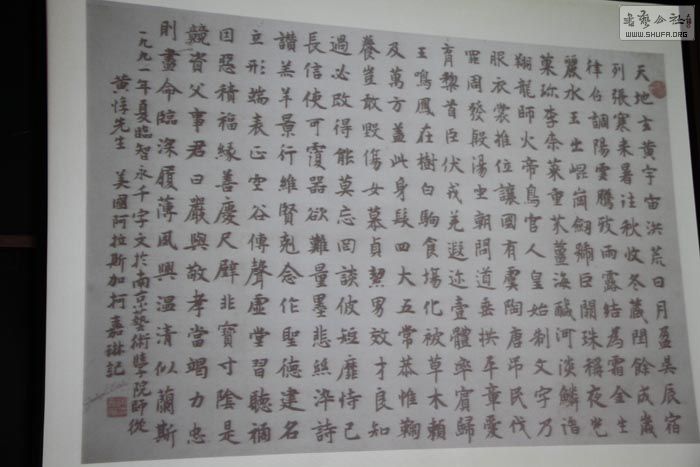 天地玄黄宇宙洪荒日月盈昃辰宿
列張寒来暑往秋收冬蔵閏餘成歲
律吕調陽雲騰致雨露結為霜金生
麗水玉出崐崗劔號巨闕珠稱夜光
菓珎李柰菜重芥薑海醎河淡鱗潜
翔龍師火帝鳥官人皇始制文字乃
服衣裳推位讓國有虞陶唐弔民伐
罪周發殷湯坐朝問道垂拱平章愛
育黎首臣伏戎羌遐迩壹體率賓歸
王鳴鳳在樹白駒食塲化被草木賴
及萬方盖此身髮四大五常恭惟鞠
養豈敢毀傷女慕貞絜男效才良知
過必改得能莫忘罔談彼短靡恃己
長信使可覆器欲難量墨悲絲淬詩
讚羔羊景行維賢剋念作聖德建名
立形端表正空谷傳聲虚堂習聽禍
因惡積福緣善慶尺璧非寶寸陰是
競資父事君曰嚴與敬孝當竭力忠
則盡命臨深履薄夙興温清似蘭斯
一九九一年夏臨智永千字文於南京藝術學院師從
黄惇先生 美國阿拉斯加柯嘉琳記
WWW.SHUFA.ORG